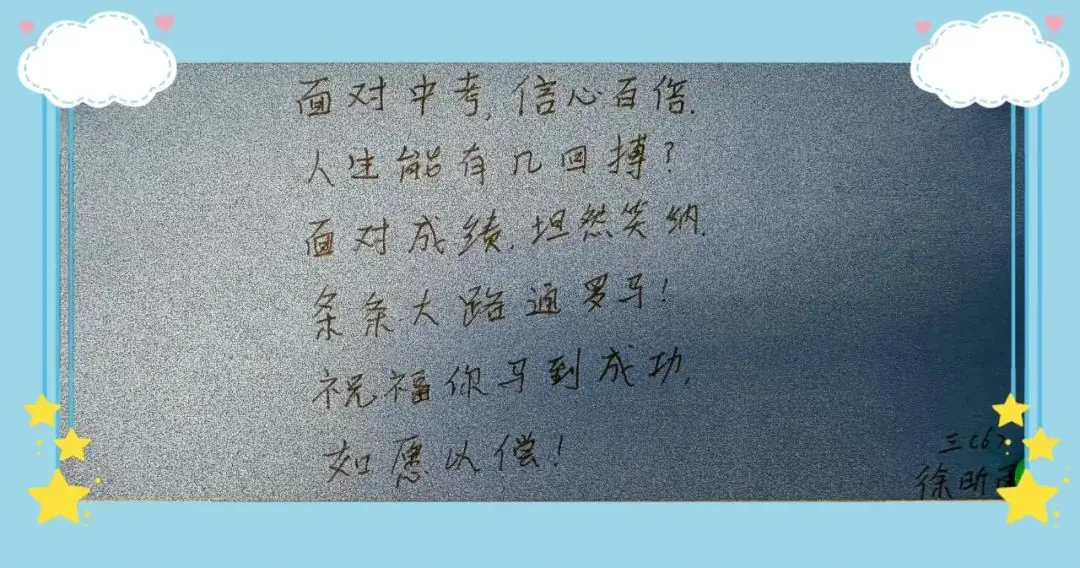 面对中考,信心百倍.
人生能有几回搏?
面对成绩.坦然笑纳.
条条大路通罗马!
祝福你马到成功.
如愿以偿!
三(6)
徐昕